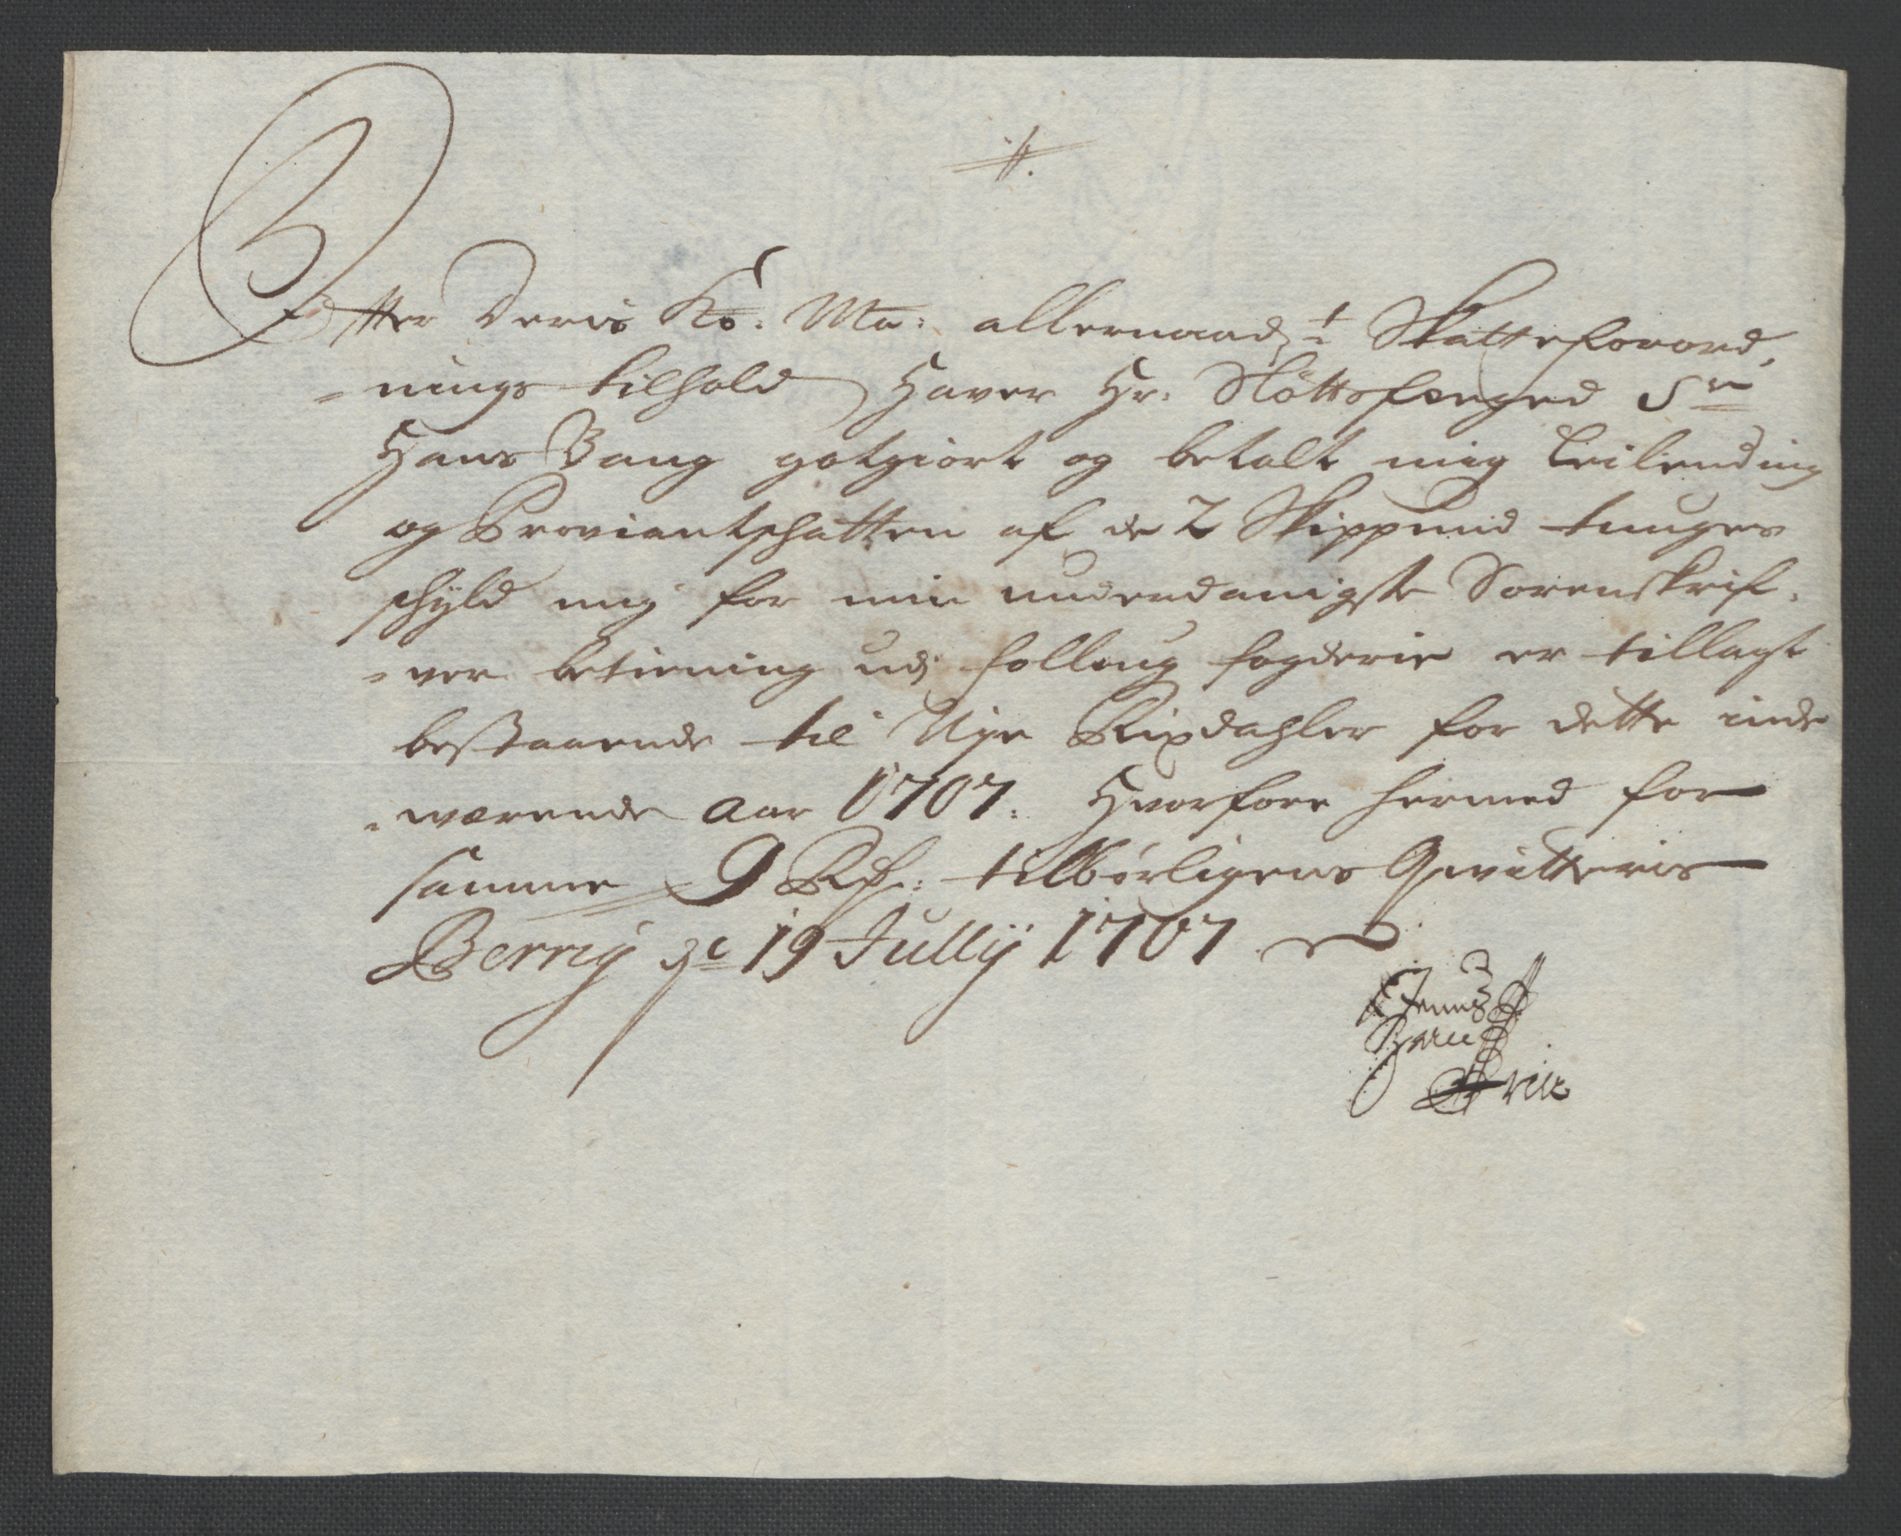 Efter Deris Ko: Ma: allernaadt Skatteforord,
=nings tilhold Haver Hr: Slottsfoeged Sr
Hans Bang gotgiort og betalt mig Leilending
og Proviantschatten af de 2 Skippund tunges
schyld mig for min underdanigste Sorenskrif,
=ver betiening udj follaug fogderie er tillagt
bestaaende til Nye Rixdahler for dette inde
=værende Aar 1707. Hvorfore hermed for
samme 9 Rd: tilbörligens Qvitteris
Berrig de 19 Jullij 1707